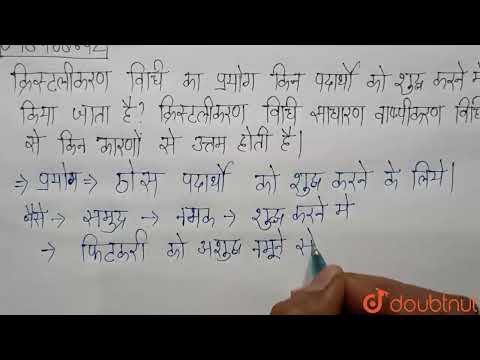 क्रिस्टलीकरण विधि का प्रयोग किन पदार्थों को शुद्ध करने मे
किया जाता है? क्रिस्टलीकरण विधि साधारण वाष्पीकरण विधि
से किन कारणों से उत्तम होती है।
⇒ प्रयोग ⇒ ठोस पदार्थो को शुद्ध करने के लिये।
जैसे → समुद्र → नमक → शुद्ध करने मे
→ फिटकरी को अशुद्ध नमूने से
doubtnut